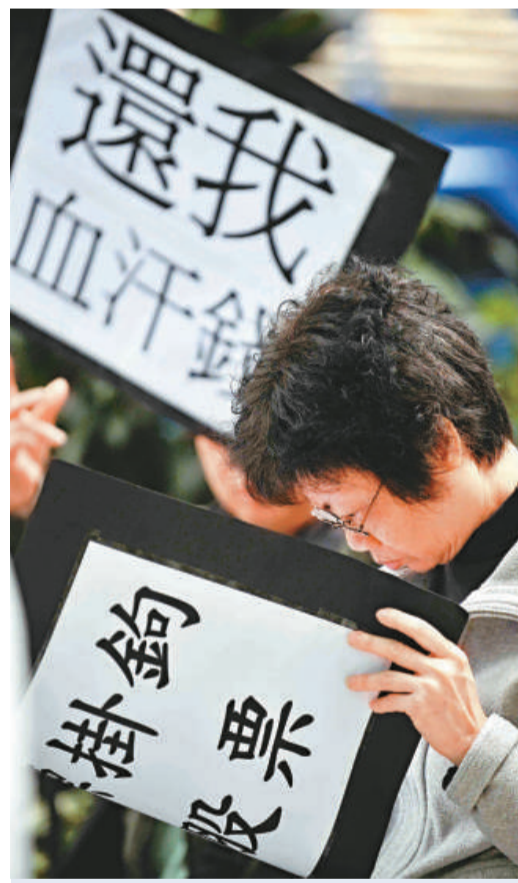 還我
血汗錢
掛鉤
股票